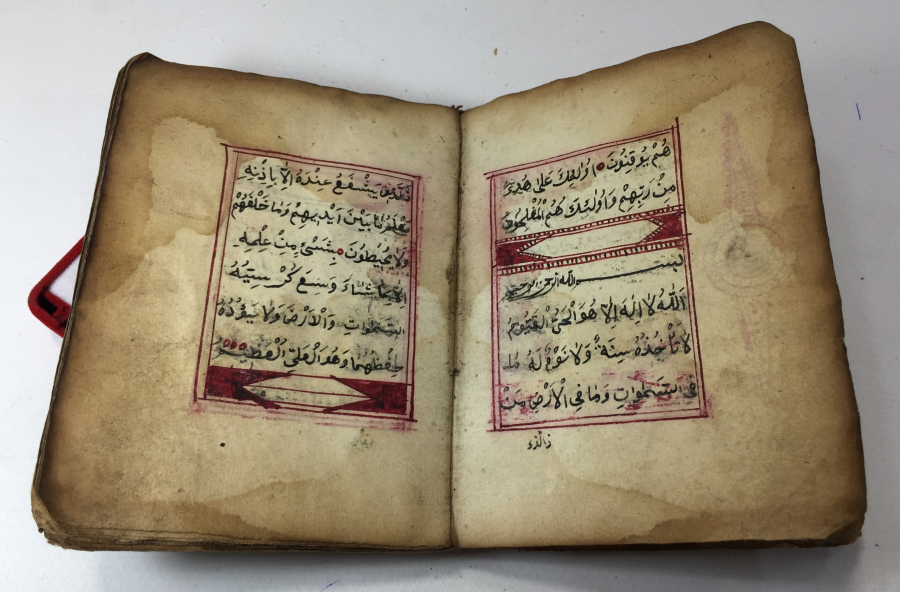 هُمْ يُوقِنُونَ اُولٰئِكَ عَلٰى هُدًى
مِنْ رَبِّهِمْ وَاُولٰئِكَ هُمُ الْمُفْلِحُونَ
بسم الله الرحمن الرحيم
اَللّٰهُ لَا اِلٰهَ اِلَّا هُوَ الْحَىُّ الْقَيُّومُ
لَا تَأْخُذُهُ سِنَةٌ وَلَا نَوْمٌ لَهُ مَا
فِى السَّمٰوَاتِ وَمَا فِى الْاَرْضِ مَنْ
ذالذى
يَشْفَعُ عِنْدَهُ اِلَّا بِاِذْنِهِ
يَعْلَمُ مَا بَيْنَ اَيْدِيهِمْ وَمَا خَلْفَهُمْ
وَلَا يُحِيطُونَ بِشَىْءٍ مِنْ عِلْمِهِ
اِلَّا بِمَا شَاءَ وَسِعَ كُرْسِيُّهُ
السَّمٰوَاتِ وَالْاَرْضَ وَلَا يَؤُدُهُ
حِفْظُهُمَا وَهُوَ الْعَلِىُّ الْعَظِيمُ